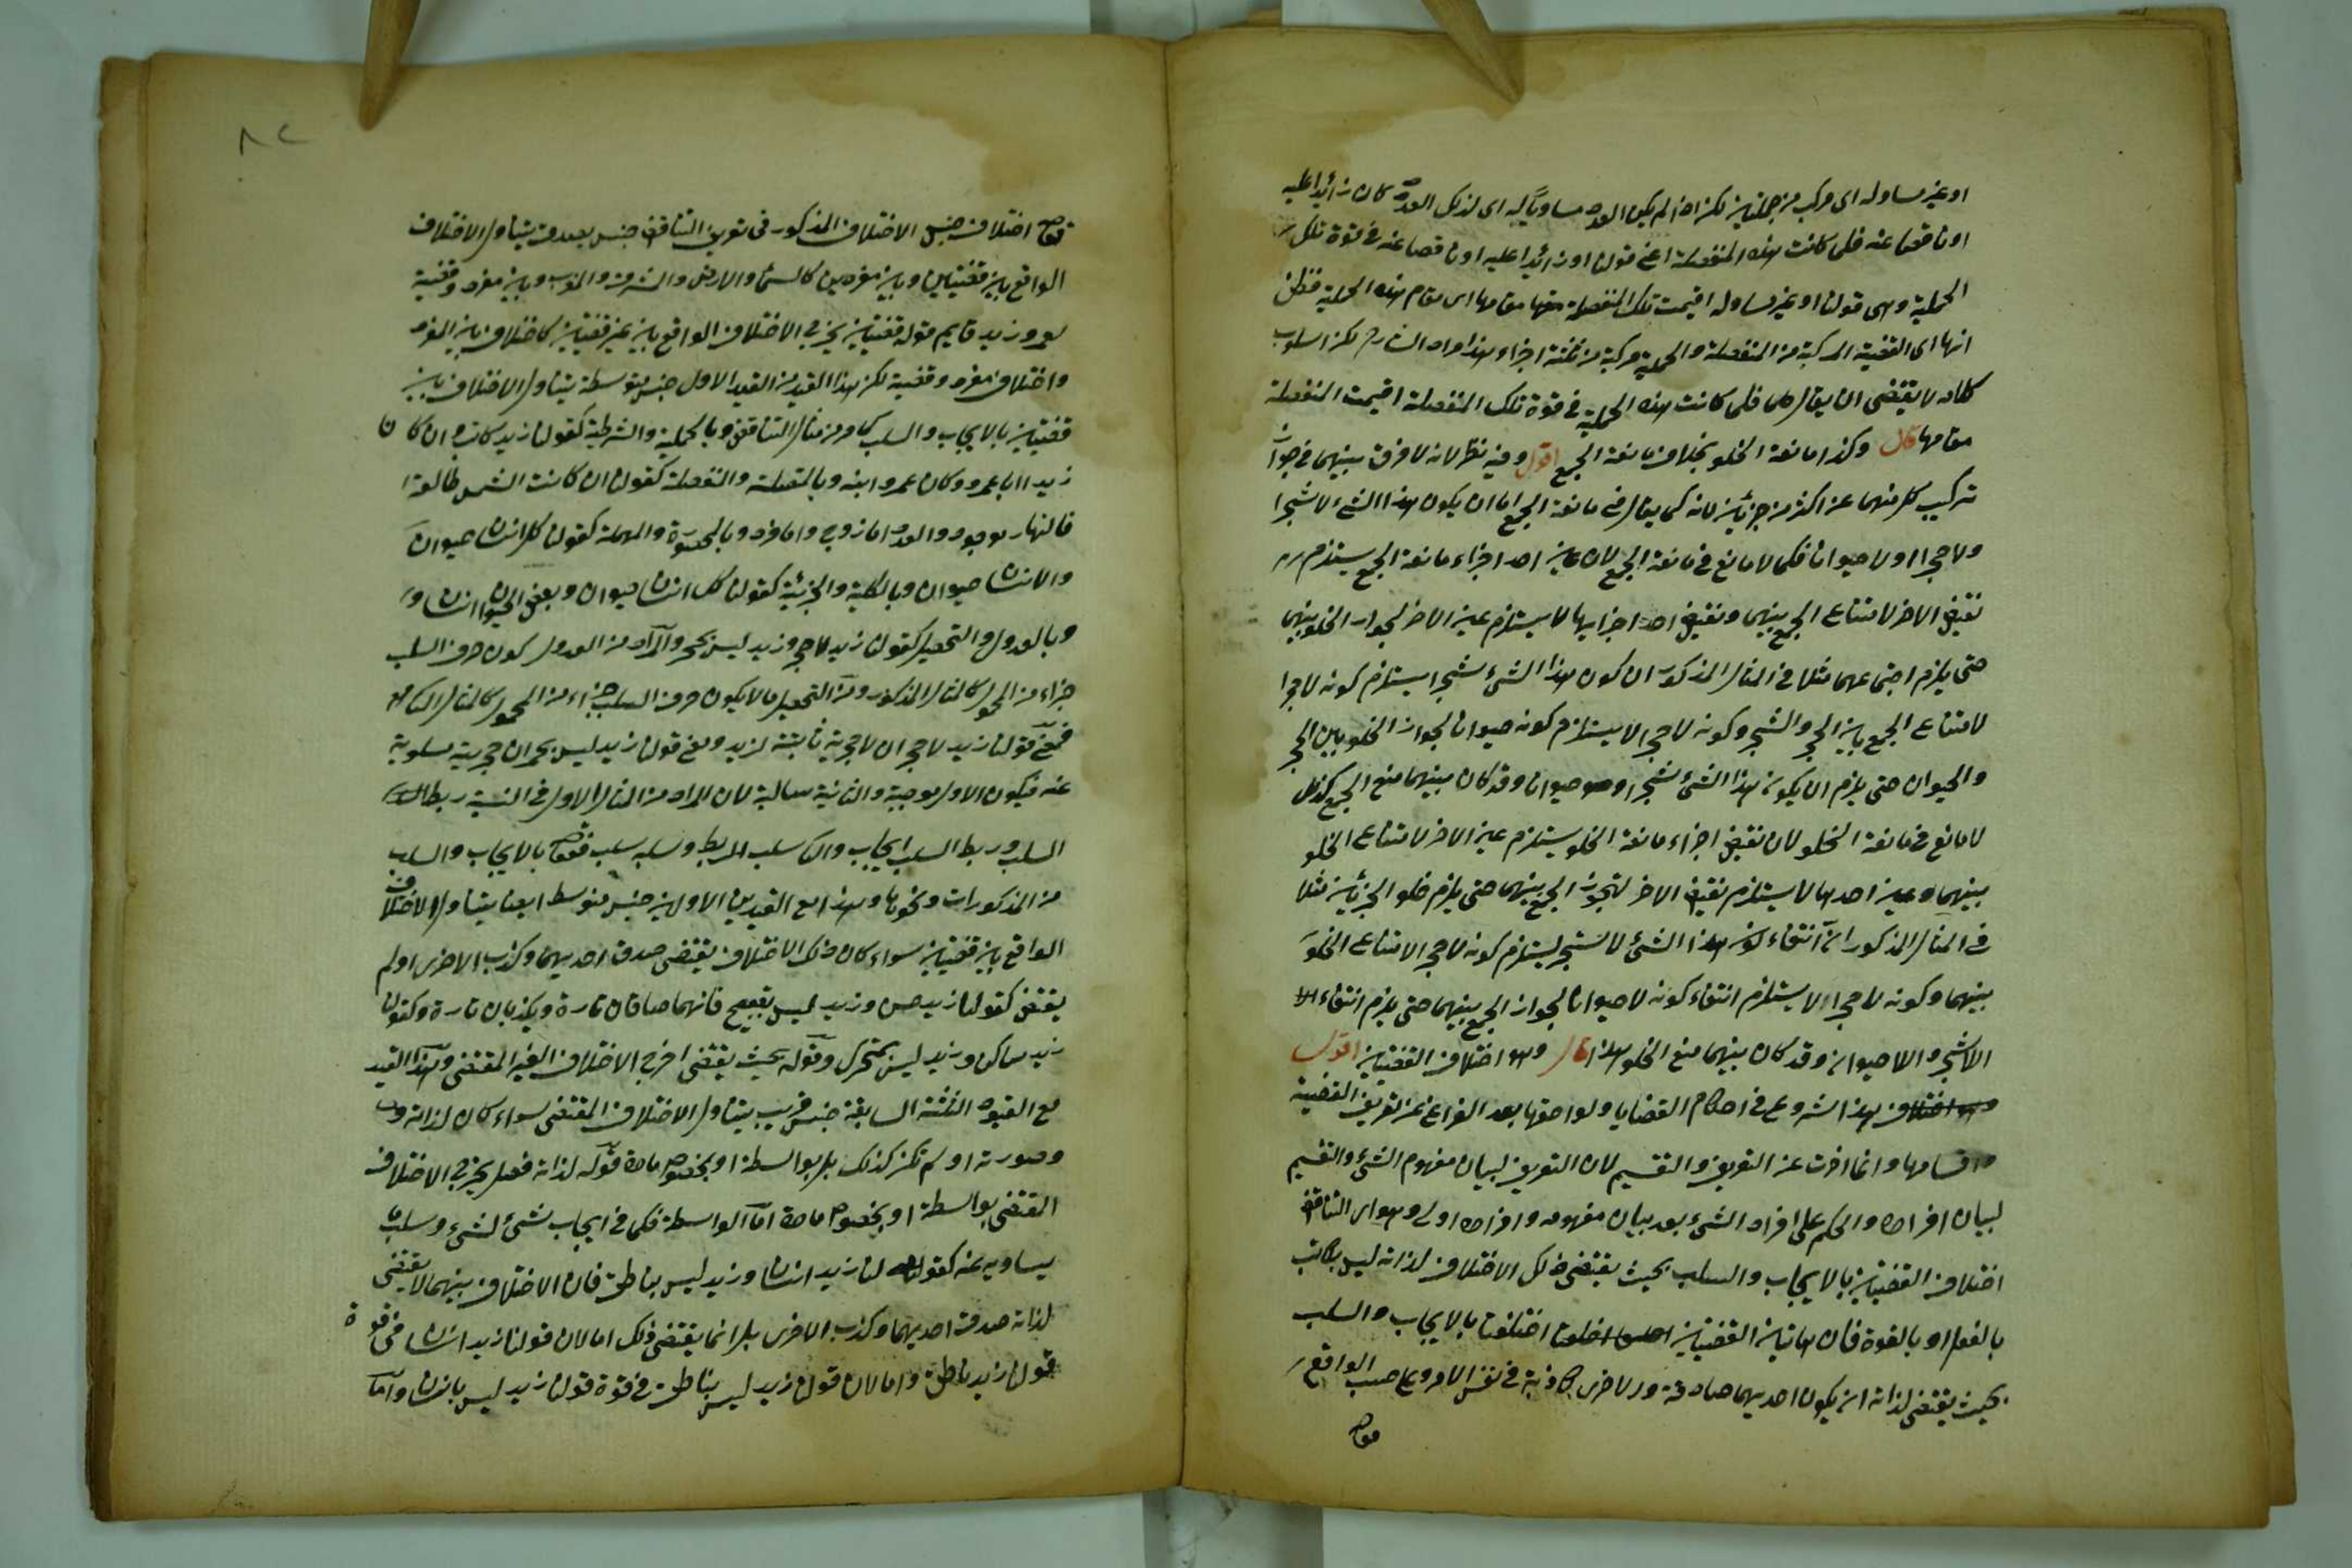 او غير مساو له اى مركب من حمليتين لكن اذا لم يكن العدد مساويا له اى لذلك العدد كان زائدا عليه
او ناقصا عنه فلما كانت هذه المنفصلة اعنى قولنا او زائدا عليه او ناقصا عنه فى قوة تلك
الحملية وهى قولنا او غير مساو له اقيمت تلك المنفصلة مقامها اى مقام هذه الحملية فظن
انها اى القضية المركبة من المنفصلة والحملية مركبة من ثلثة اجزاء هذا مراد الشارح لكن اسلوب
كلامه لا يقتضى ان يقال فلما كانت هذه الحملية فى قوة تلك المنفصلة اقيمت المنفصلة
مقامها قال وكذا مانعة الخلو بخلاف مانعة الجمع اقول وفيه نظر لانه لا فرق بينهما فى جواز
تركيب كل منهما عن اكثر من جزئين لانه كما يقال فى مانعة الجمع اما ان يكون هذا الشئ شجرا
او حجرا او حيوانا فكما لا مانع فى مانعة الجمع لان عين احد اجزاء مانعة الجمع يستلزم
نقيض الاخر لامتناع الجمع بينهما ونقيض احد اجزائها لا يستلزم عين الاخر لجواز الخلو بينهما
حتى يلزم اجتماعهما مثلا فى المثال المذكور ان كون هذا الشئ شجرا يستلزم كونه لا حجرا
لامتناع الجمع بين الحجر والشجر وكونه لا حجرا لا يستلزم كونه حيوانا لجواز الخلو بين الحجر
والحيوان حتى يلزم ان يكون هذا الشئ شجرا وحيوانا وقد كان بينهما منع الجمع كذلك
لا مانع فى مانعة الخلو لان نقيض اجزاء مانعة الخلو يستلزم عين الاخر لامتناع الخلو
بينهما وعين احدها لا يستلزم نقيض الاخر لتجويز الجمع بينهما حتى يلزم خلو الجزئين مثلا
فى المثال المذكور ان انتفاء كون هذا الشئ لا شجر يستلزم كونه لا حجرا لامتناع الخلو
بينهما وكونه لا حجرا لا يستلزم انتفاء كونه لا حيوانا لجواز الجمع بينهما حتى يلزم انتفاء
اللاشجر واللاحيوان وقد كان بينهما منع الخلو هذا قال وهو اختلاف القضيتين اقول
هذا شروع فى احكام القضايا ولواحقها بعد الفراغ عن تعريف القضية
واقسامها وانما اخرت عن التعريف والتقسيم لان التعريف لبيان مفهوم الشئ والتقسيم
لبيان افراده والحكم على افراد الشئ بعد بيان مفهومه وافراده اولى وهو اى التناقض
اختلاف القضيتين بالايجاب والسلب بحيث يقتضى ذلك الاختلاف لذاته ليس بكاتب
بالفعل او بالقوة فان هاتين القضيتين اختلفتا بالايجاب والسلب
بحيث يقتضى لذاته ان يكون احديهما صادقة والاخرى كاذبة فى نفس الامر وعلى حسب الواقع
فقوله
٨٢
فقوله اختلاف جنس الاختلاف المذكور فى تعريف التناقض جنس بعيد يتناول الاختلاف
الواقع بين قضيتين وبين مفردين كالسماء والارض والشرق والغرب وبين مفرد وقضية
كعمرو زيد قايم قوله قضيتين يخرج الاختلاف الواقع بين غير قضيتين كاختلاف بين المفرد
واختلاف مفرد وقضية لكن هذا القيد من القيد الاول جنس متوسط يتناول الاختلاف بين
قضيتين بالايجاب والسلب كما مر من مثال التناقض وبالحملية والشرطية كقولنا زيد كاتب وان كان
زيد ابا عمرو وكان عمرو ابنه وبالمتصلة والمنفصلة كقولنا ان كانت الشمس طالعة
فالنهار موجود والعدد اما زوج واما فرد وبالمحصورة والمهملة كقولنا كل انسان حيوان
والانسان حيوان وبالكلية والجزئية كقولنا كل انسان حيوان وبعض الحيوان انسان
وبالعدول والتحصيل كقولنا زيد لا حجر وزيد ليس بحجر والمراد من العدول كون حرف السلب
جزاء من المحمول كالمثال المذكور ومن التحصيل ما لا يكون حرف السلب جزاء من المحمول كالمثال الثانى
فمعنى قولنا زيد لا حجر ان لا حجرية ثابتة لزيد ومعنى قولنا زيد ليس بحجر ان حجرية مسلوبة
عنه فيكون الاول موجبة والثانية سالبة لان المراد من المثال الاول فى النسبة ربط
السلب وربط السلب ايجاب والثانى سلب الربط وسلبه سلب فقوله بالايجاب والسلب
من المذكورات ونحوها وهذا مع القيدين الاولين جنس متوسط ايضا يتناول الاختلاف
الواقع بين قضيتين سواء كان ذلك الاختلاف يقتضى صدق احديهما وكذب الاخرى او لم
يقتض كقولنا زيد حسن وزيد ليس بقبيح فانهما صادقان تارة ويكذبان تارة وكقولنا
زيد ساكن وزيد ليس بمتحرك وقوله بحيث يقتضى اخرج الاختلاف الغير المقتضى وهذا القيد
مع القيود الثلثة السابقة جنس قريب يتناول الاختلاف المقتضى سواء كان لذاته
وصورته او لم تكن كذلك بل بواسطة او بخصوص مادة قوله لذاته فصل يخرج الاختلاف
المقتضى بواسطة او بخصوص مادة اما الواسطة فكما فى ايجاب شئ لشئ وسلب ما
يساويه عنه كقولنا زيد انسان وزيد ليس بناطق فان الاختلاف بينهما لا يقتضى
لذاته صدق احديهما وكذب الاخرى بل انما يقتضى ذلك اما لان قولنا زيد انسان فى قوة
قولنا زيد ناطق واما لان قولنا زيد ليس بناطق فى قوة قولنا زيد ليس بانسان واما